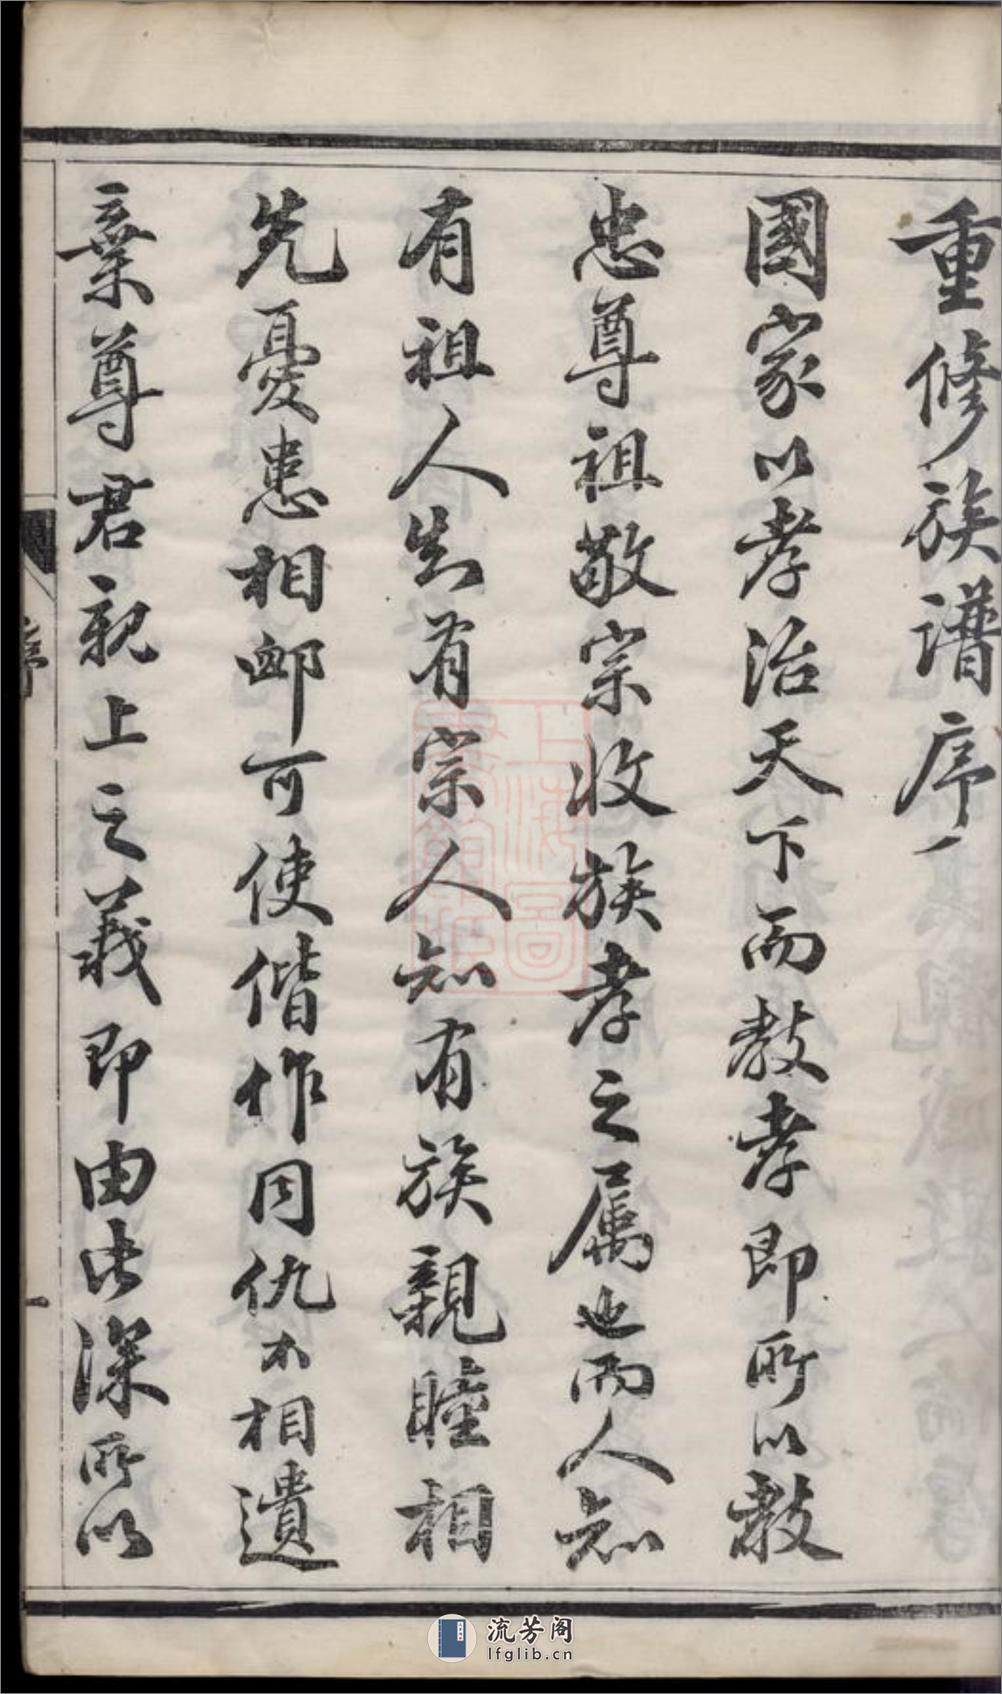 重修族譜序
國家以孝治天下而教孝即所以教
忠尊祖敬宗收族孝之属也而人知
有祖人知有宗人知有族親睦相
先憂患相卹可使偕作同仇不相遺
棄尊君親上之義即由此深所以
序
一
上海圖
流芳阁
lfglib.cn